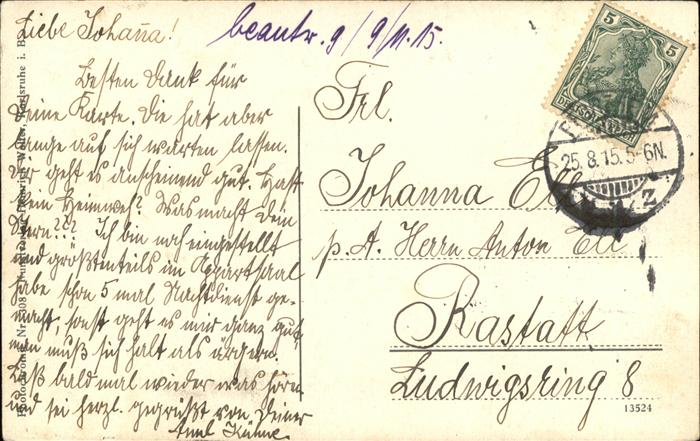 Liebe Johanna!
beantw. 9/9/11.15.
Besten Dank für
Deine Karte. Die hat aber
lange auf sich warten lassen.
Dir geht es anscheinend gut. Hast
kein Heimweh? Was macht Dein
Stern??? Ich bin noch eingestellt
und größtenteils im Apparatsaal
habe schon 5 mal Nachtdienst ge-
macht, sonst geht es mir ganz gut,
man muß sich halt als ärgern.
Laß bald mal wieder was hören
und sei herzl. gegrüßt von Deiner
Frl.
Johanna
p. A. Herrn Anton
Rastatt
Ludwigsring 8
13524
5 5
DEUTSCHES REICH
25. 8. 15. 5-6N.
z
Karlsruhe i. B.